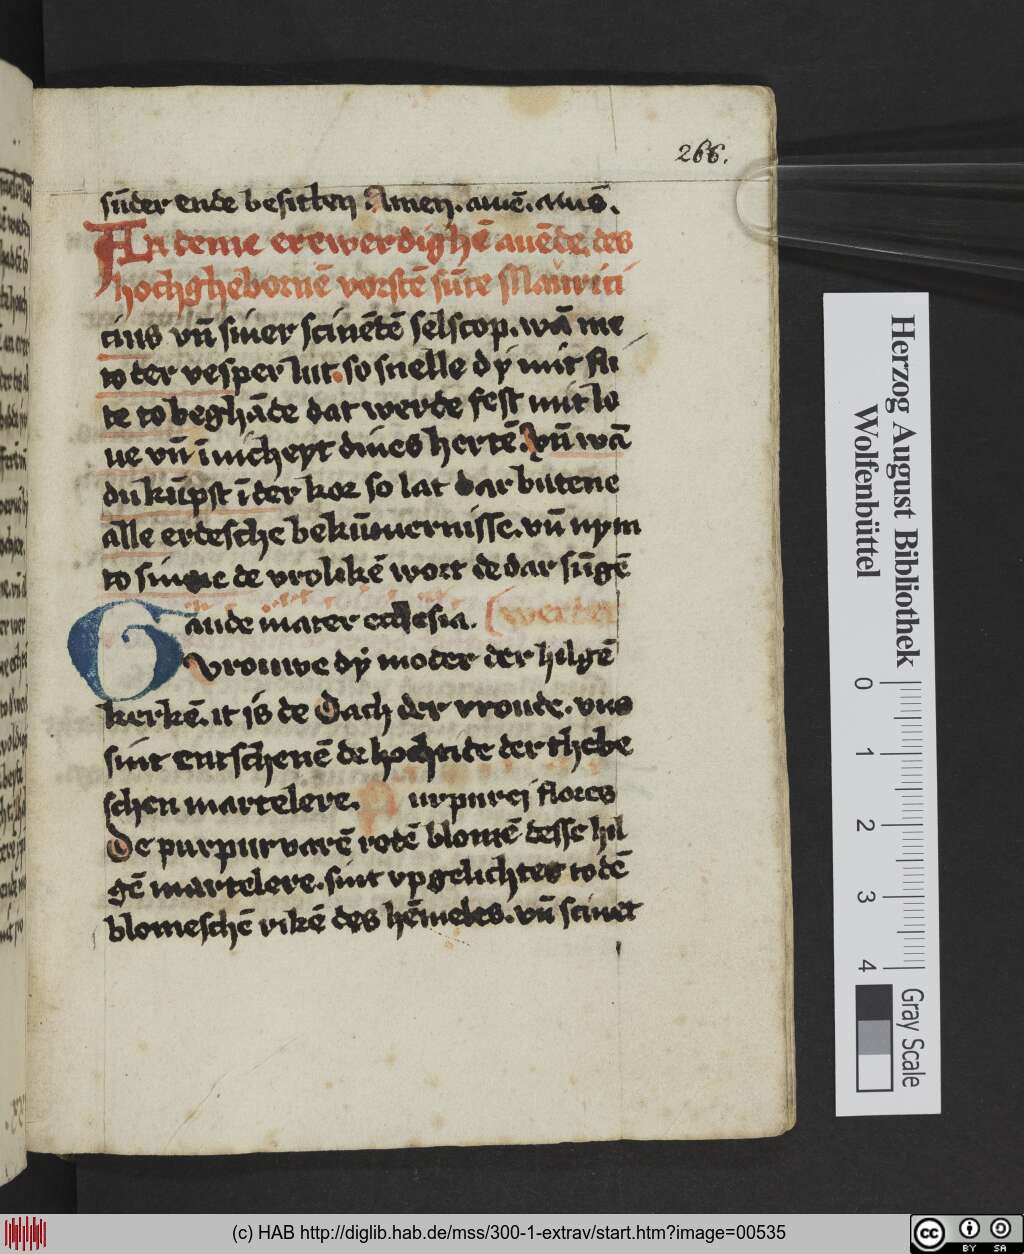 266.
sūder ende besitten Amen. auē. auīs.
An deme erewerdighē auēde des
hochghebornē vorstē sūte Mauriti
cius vn̄ siner scinētē selscop. wā me
to der vesper lut. so snelle dy mit fli
te to beghāde dat werde fest mit lo
ue vn̄ īnicheyt dines hertē. vn̄ wā
du kūpst ī der kor so lat dar butene
alle erdesche bekūmernisse. vn̄ nym
to sinne de vrolikē wort de dar sūgē
Gaude mater ecclesia. (werden
Vrouwe dy moder der hilgē
kerkē. it is de dach der vroude. vns
sint entschenē de hochtide der thebe
schen martelere. Purpurei flores
De purpurvarē rodē blomē desse hil
gē martelere. sint upgelichtet to dē
blomeschē rikē des hēmeles. vn̄ scinet
Herzog August Bibliothek
Wolfenbüttel
0 1 2 3 4
Gray Scale
(c) HAB http://diglib.hab.de/mss/300-1-extrav/start.htm?image=00535
cc BY SA